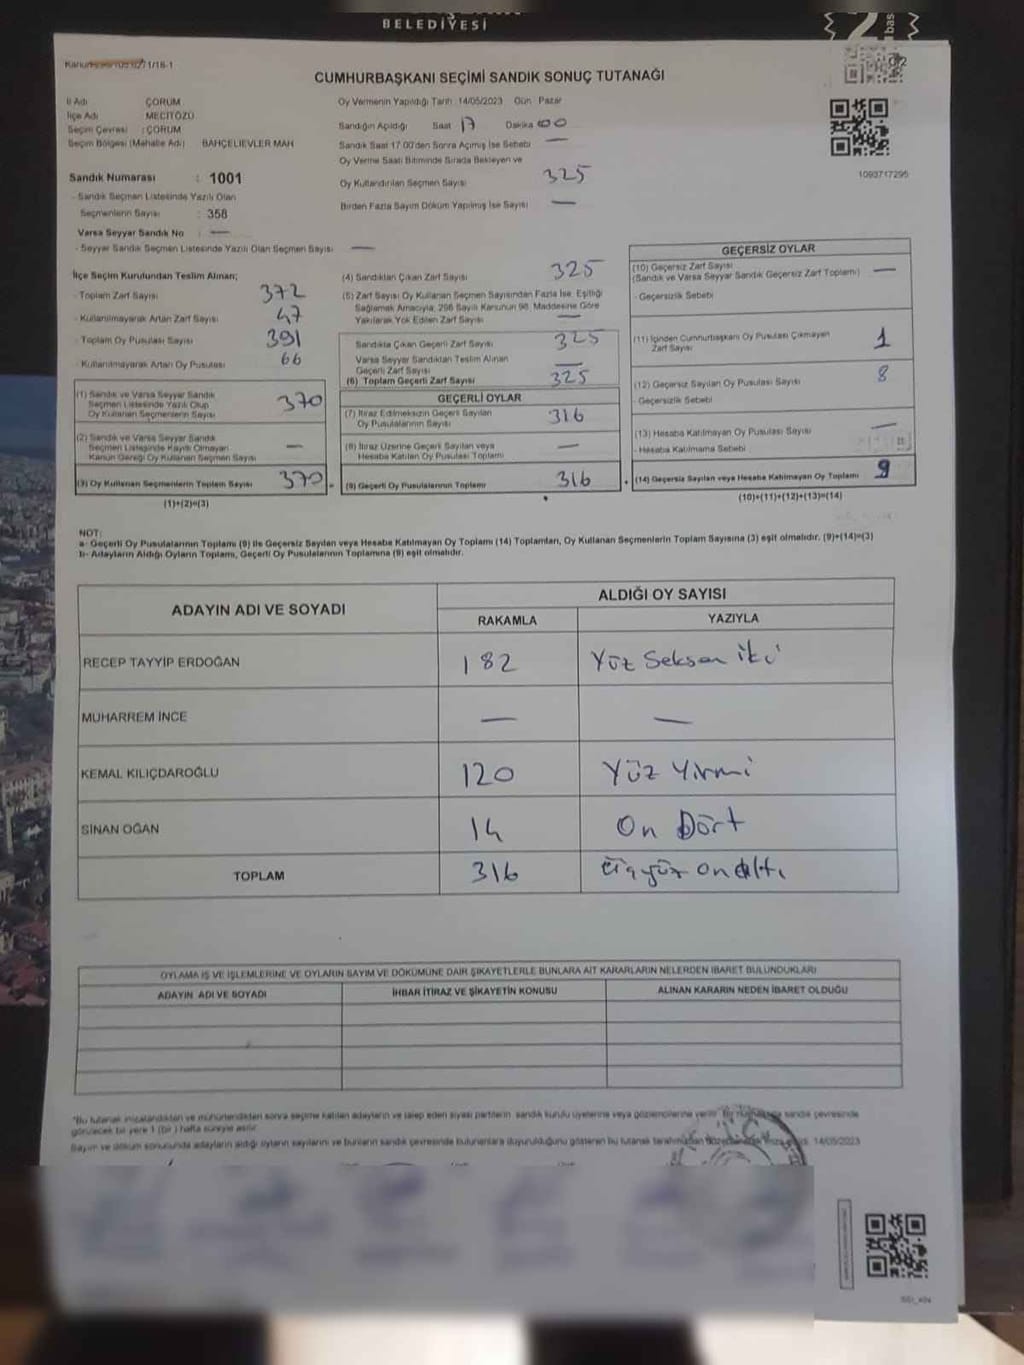 BELEDİYESİ
CUMHURBAŞKANI SEÇİMİ SANDIK SONUÇ TUTANAĞI
İl Adı ÇORUM
İlçe Adı MECİTÖZÜ
Seçim Çevresi : ÇORUM
Seçim Bölgesi (Mahalle Adı) BAHÇELİEVLER MAH
Sandık Numarası : 1001
- Sandık Seçmen Listesinde Yazılı Olan
Seçmenlerin Sayısı : 358
Varsa Seyyar Sandık No : —
- Seyyar Sandık Seçmen Listesinde Yazılı Olan Seçmen Sayısı —
Oy Vermenin Yapıldığı Tarih 14/05/2023 Gün Pazar
Sandığın Açıldığı Saat 17 Dakika 00
Sandık Saat 17.00'den Sonra Açmış İse Sebebi —
Oy Verme Saati Bitiminde Sırada Bekleyen ve
Oy Kullandırılan Seçmen Sayısı 325
Birden Fazla Sayım Döküm Yapılmış İse Sayısı —
1093717295
İlçe Seçim Kurulundan Teslim Alınan;
- Toplam Zarf Sayısı 372
- Kullanılmayarak Artan Zarf Sayısı 47
- Toplam Oy Pusulası Sayısı 391
- Kullanılmayarak Artan Oy Pusulası 66
(1) Sandık ve Varsa Seyyar Sandık
Seçmen Listesinde Yazılı Olup
Oy Kullanan Seçmenlerin Sayısı 370
(2) Sandık ve Varsa Seyyar Sandık
Seçmen Listesinde Kayıtlı Olmayan
Kanun Gereği Oy Kullanan Seçmen Sayısı —
(3) Oy Kullanan Seçmenlerin Toplam Sayısı 370
(1)+(2)=(3)
(4) Sandıktan Çıkan Zarf Sayısı 325
(5) Zarf Sayısı Oy Kullanan Seçmen Sayısından Fazla İse, Eşitliği
Sağlamak Amacıyla, 298 Sayılı Kanunun 98. Maddesine Göre
Yakılarak Yok Edilen Zarf Sayısı —
Sandıkta Çıkan Geçerli Zarf Sayısı 325
Varsa Seyyar Sandıktan Teslim Alınan
Geçerli Zarf Sayısı —
(6) Toplam Geçerli Zarf Sayısı 325
GEÇERLİ OYLAR
(7) İtiraz Edilmeksizin Geçerli Sayılan
Oy Pusulalarının Sayısı 316
(8) İtiraz Üzerine Geçerli Sayılan veya
Hesaba Katılan Oy Pusulası Toplamı —
(9) Geçerli Oy Pusulalarının Toplamı 316
GEÇERSİZ OYLAR
(10) Geçersiz Zarf Sayısı
(Sandık ve Varsa Seyyar Sandık Geçersiz Zarf Toplamı) —
- Geçersizlik Sebebi
(11) İçinden Cumhurbaşkanı Oy Pusulası Çıkmayan
Zarf Sayısı 1
(12) Geçersiz Sayılan Oy Pusulası Sayısı 8
- Geçersizlik Sebebi
(13) Hesaba Katılmayan Oy Pusulası Sayısı —
- Hesaba Katılmama Sebebi
(14) Geçersiz Sayılan veya Hesaba Katılmayan Oy Toplamı 9
(10)+(11)+(12)+(13)=(14)
NOT:
a- Geçerli Oy Pusulalarının Toplamı (9) ile Geçersiz Sayılan veya Hesaba Katılmayan Oy Toplamı (14) Toplamları, Oy Kullanan Seçmenlerin Toplam Sayısına (3) eşit olmalıdır. (9)+(14)=(3)
b- Adayların Aldığı Oyların Toplamı, Geçerli Oy Pusulalarının Toplamına (9) eşit olmalıdır.
ADAYIN ADI VE SOYADI ALDIĞI OY SAYISI
RAKAMLA YAZIYLA
RECEP TAYYİP ERDOĞAN 182 Yüz Seksen İki
MUHARREM İNCE — —
KEMAL KILIÇDAROĞLU 120 Yüz Yirmi
SİNAN OĞAN 14 On Dört
TOPLAM 316 Üçyüz on altı
OYLAMA İŞ VE İŞLEMLERİNE VE OYLARIN SAYIM VE DÖKÜMÜNE DAİR ŞİKAYETLERLE BUNLARA AİT KARARLARIN NELERDEN İBARET BULUNDUKLARI
ADAYIN ADI VE SOYADI İHBAR İTİRAZ VE ŞİKAYETİN KONUSU ALINAN KARARIN NEDEN İBARET OLDUĞU
*Bu tutanak imzalandıktan ve mühürlendikten sonra seçime katılan adayların ve talep eden siyasi partilerin sandık kurulu üyelerine veya gözlemcilerine verilir. Bir sandık çevresinde
görülecek bir yere 1 (bir) hafta süreyle asılır.
Sayım ve döküm sonucunda adayların aldığı oyların sayılarını ve bunların sandık çevresinde bulunanlara duyurulduğunu gösteren bu tutanak tarafımızdan 14/05/2023